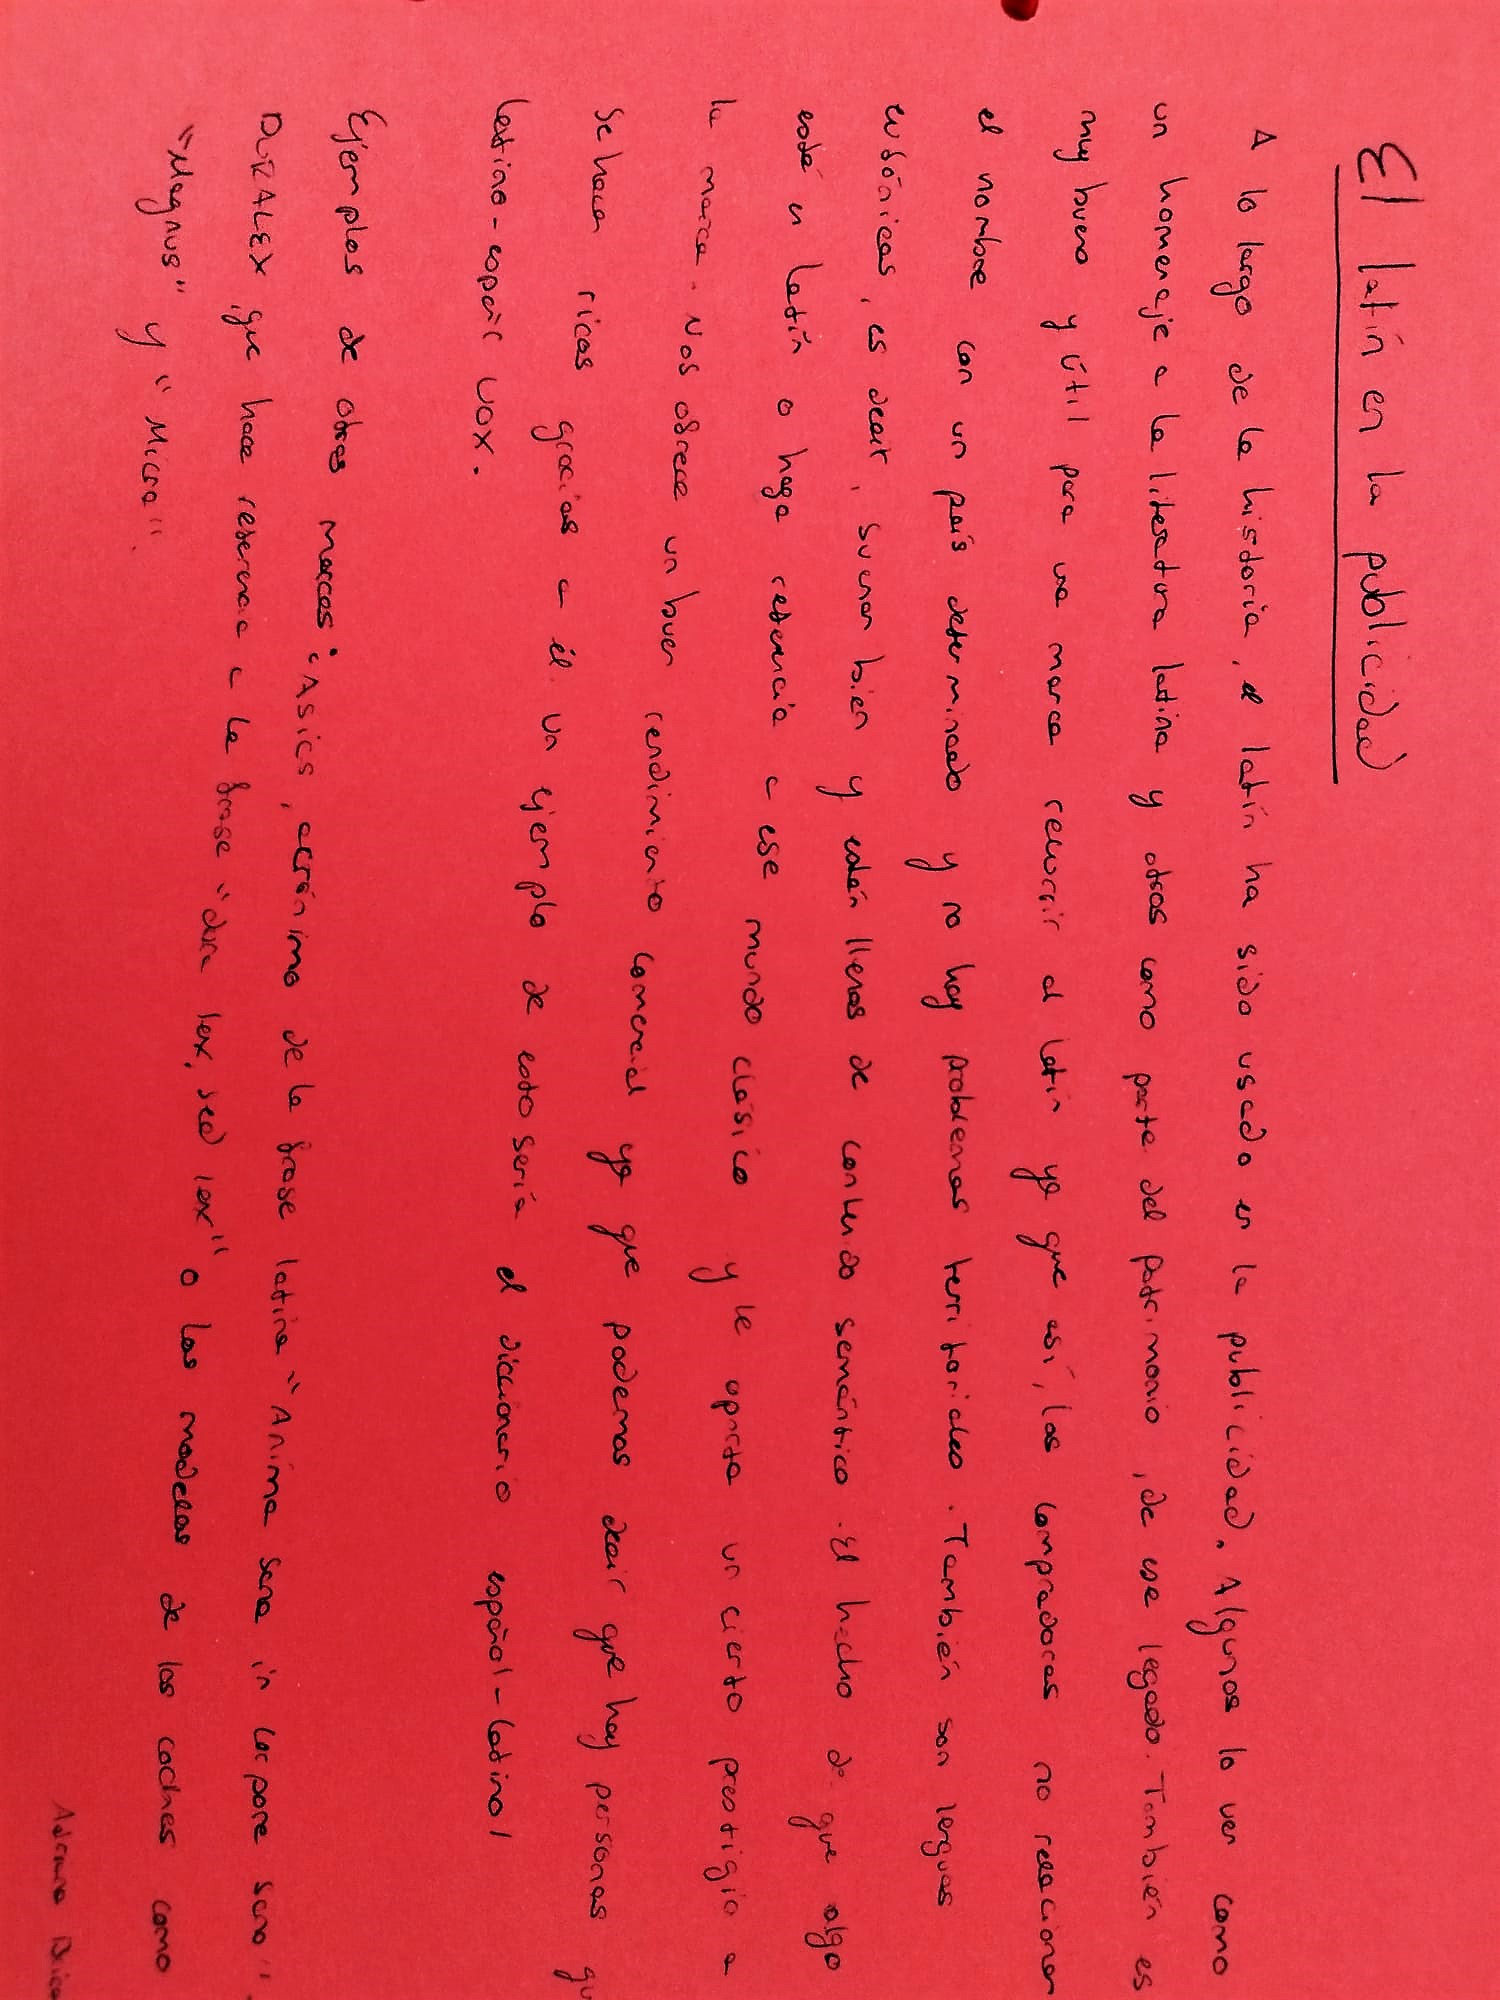 El latín en la publicidad
A lo largo de la historia, el latín ha sido usado en la publicidad. Algunos lo ven como
un homenaje a la literatura latina y otros como parte del patrimonio, de ese legado. También es
muy bueno y útil para una marca recurrir al latín ya que así, los compradores no relacionan
el nombre con un país determinado y no hay problemas territoriales. También son lenguas
eufónicas, es decir, suenan bien y están llenas de contenido semántico. El hecho de que algo
esté en latín o haga referencia a ese mundo clásico y le aporta un cierto prestigio a
la marca. Nos ofrece un buen rendimiento comercial ya que podemos decir que hay personas qu
se hacen ricas gracias a él. Un ejemplo de esto sería el diccionario español-latino/
latino-españl VOX.
Ejemplos de otras marcas: Asics, acrónimo de la frase latina "Anima sana in corpore sano".
DURALEX, que hace referencia a la frase "dura lex, sed lex" o los modelos de los coches como
"Magnus" y "Micra".